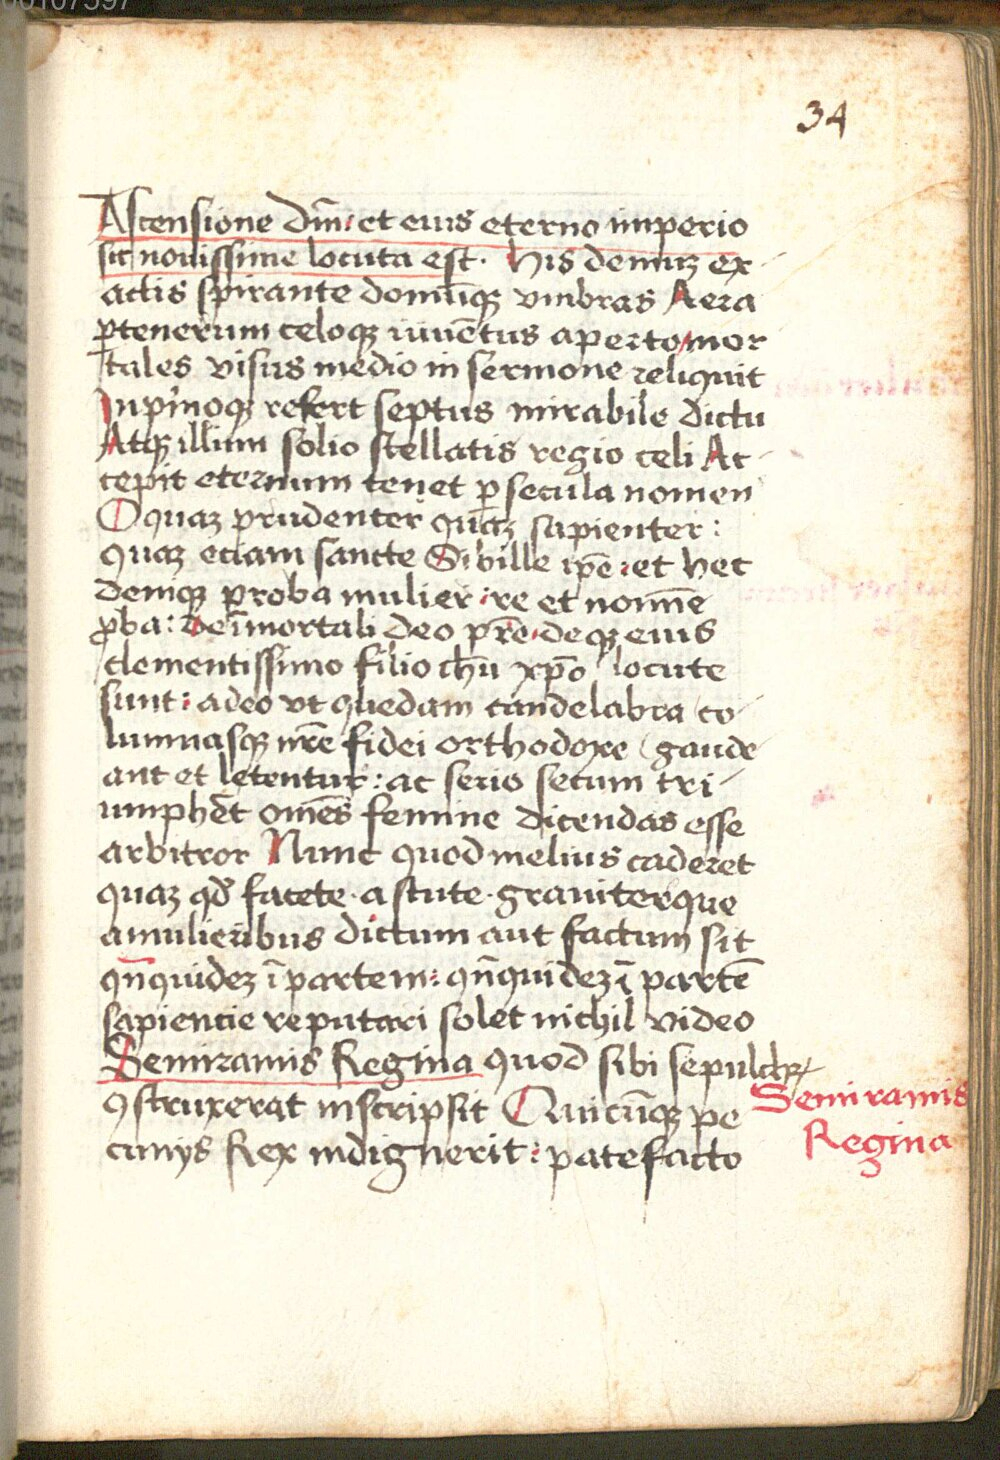 00107597
34
Ascensione dn̄i: et eius eterno imperio
sic nouissime locuta est. His demuꝫ ex-
actis spirante domūqꝫ vmbras Aera
ꝑ tenerum celoqꝫ iuuentus aperto mor
tales visus medio in sermone reliquit
Inpͥmoqꝫ refert septus mirabile dictu
Atqꝫ illum solio stellatis regio celi Ac-
cepit eternum tenet ꝑ secula nomen
O quaꝫ prudenter quaꝫ sapienter:
quaꝫ eciam sancte Sibille ip̄e: et hec
demqꝫ proba mulier: re et nomīe
ꝓba: de īmortali deo pr̄e: deqꝫ eius
clementissimo filio ihū xp̄o locute
sunt: adeo vt quedam candelabra co-
lumnasqꝫ nr̄e fidei orthodoxe gaude
ant et letentur: ac serio secum tri-
umphēt om̄es femine dicendas esse
arbitror Nunc quod melius caderet
quaꝫ qd̄ facete. astute. grauiterque
amulieribus dictum aut factum sit
qn̄quideꝫ ī partem: qn̄quideꝫ ī partē
sapiencie reputari solet nichil video
Semiramis Regina quod sibi sepulchꝝ
ꝯstruxerat inscripsit Quicūqꝫ pe
cunijs Rex indignerit: patefacto
Semiramis
Regina